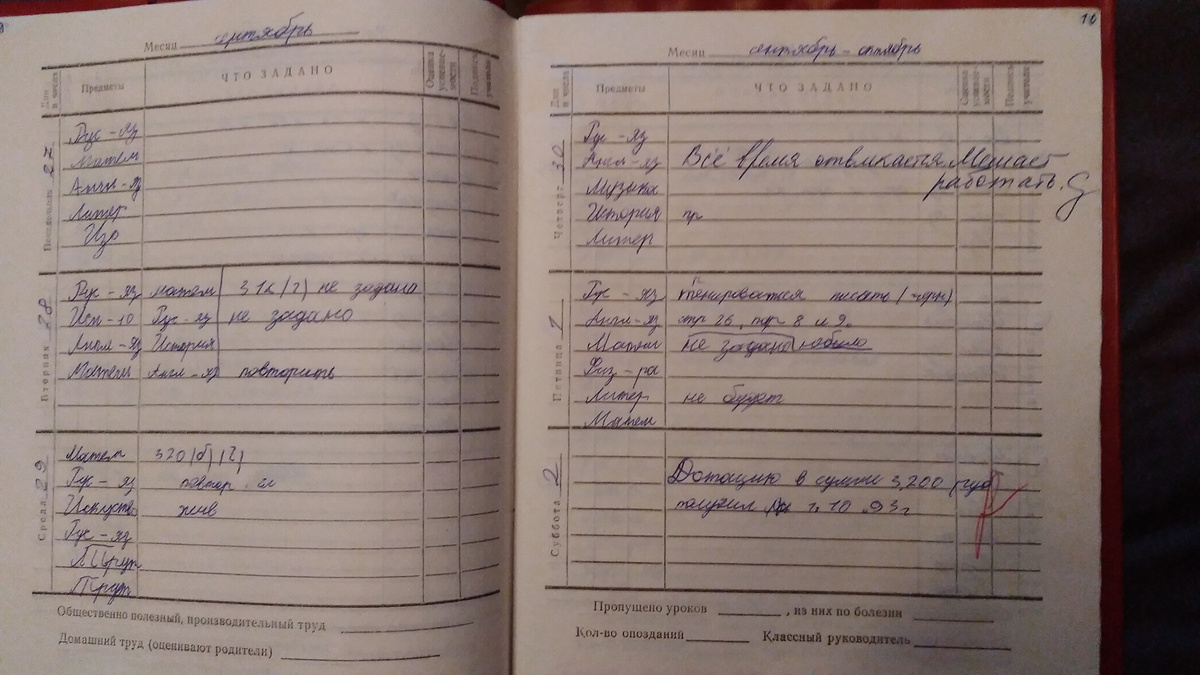 Месяц сентябрь
Дни и числа Предметы ЧТО ЗАДАНО Оценка успеваемости Подпись учителя
Понедельник 27
Рус-яз
Матем
Англ-яз
Литер
Изо
Вторник 28
Рус-яз матем 316(г) не задано
Рус-яз не задано
Англ-яз История
Матем Англ-яз повторить
Среда 29
Матем 320(б)(г)
Рус-яз повтор
Рус-яз
Труд
Труд
Общественно полезный, производительный труд
Домашний труд (оценивают родители)
10
Месяц сентябрь-октябрь
Дни и числа Предметы ЧТО ЗАДАНО Оценка успеваемости Подпись учителя
Четверг 30
Рус-яз
Англ-яз Всё время отвлкается. Мешает
Музыка работать.
История пр
Литер
Пятница 1
Рус-яз тенироваться писать (черн)
Англ-яз стр 26, упр 8 и 9.
Матем не задано небыло
Физ-ра
Литер не будет
Матем
Суббота 2
Дотацию в сумме 3,200 руб
получил 1.10.93г
Пропущено уроков , из них по болезни
Кол-во опозданий Классный руководитель